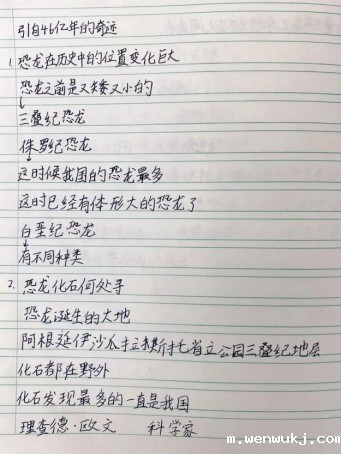 引自46亿年的奇迹
1. 恐龙在历史中的位置变化巨大
恐龙之前是又矮又小的
↓
三叠纪恐龙
侏罗纪恐龙
↓
这时候我国的恐龙最多
这时已经有体形大的恐龙了
白垩纪恐龙
↓
有不同种类
2. 恐龙化石何处寻
恐龙诞生的大地
阿根廷伊沙瓜拉斯托省立公园三叠纪地层
化石都在野外
化石发现最多的一直是我国
理查德·欧文 科学家
m.wenwukj.com